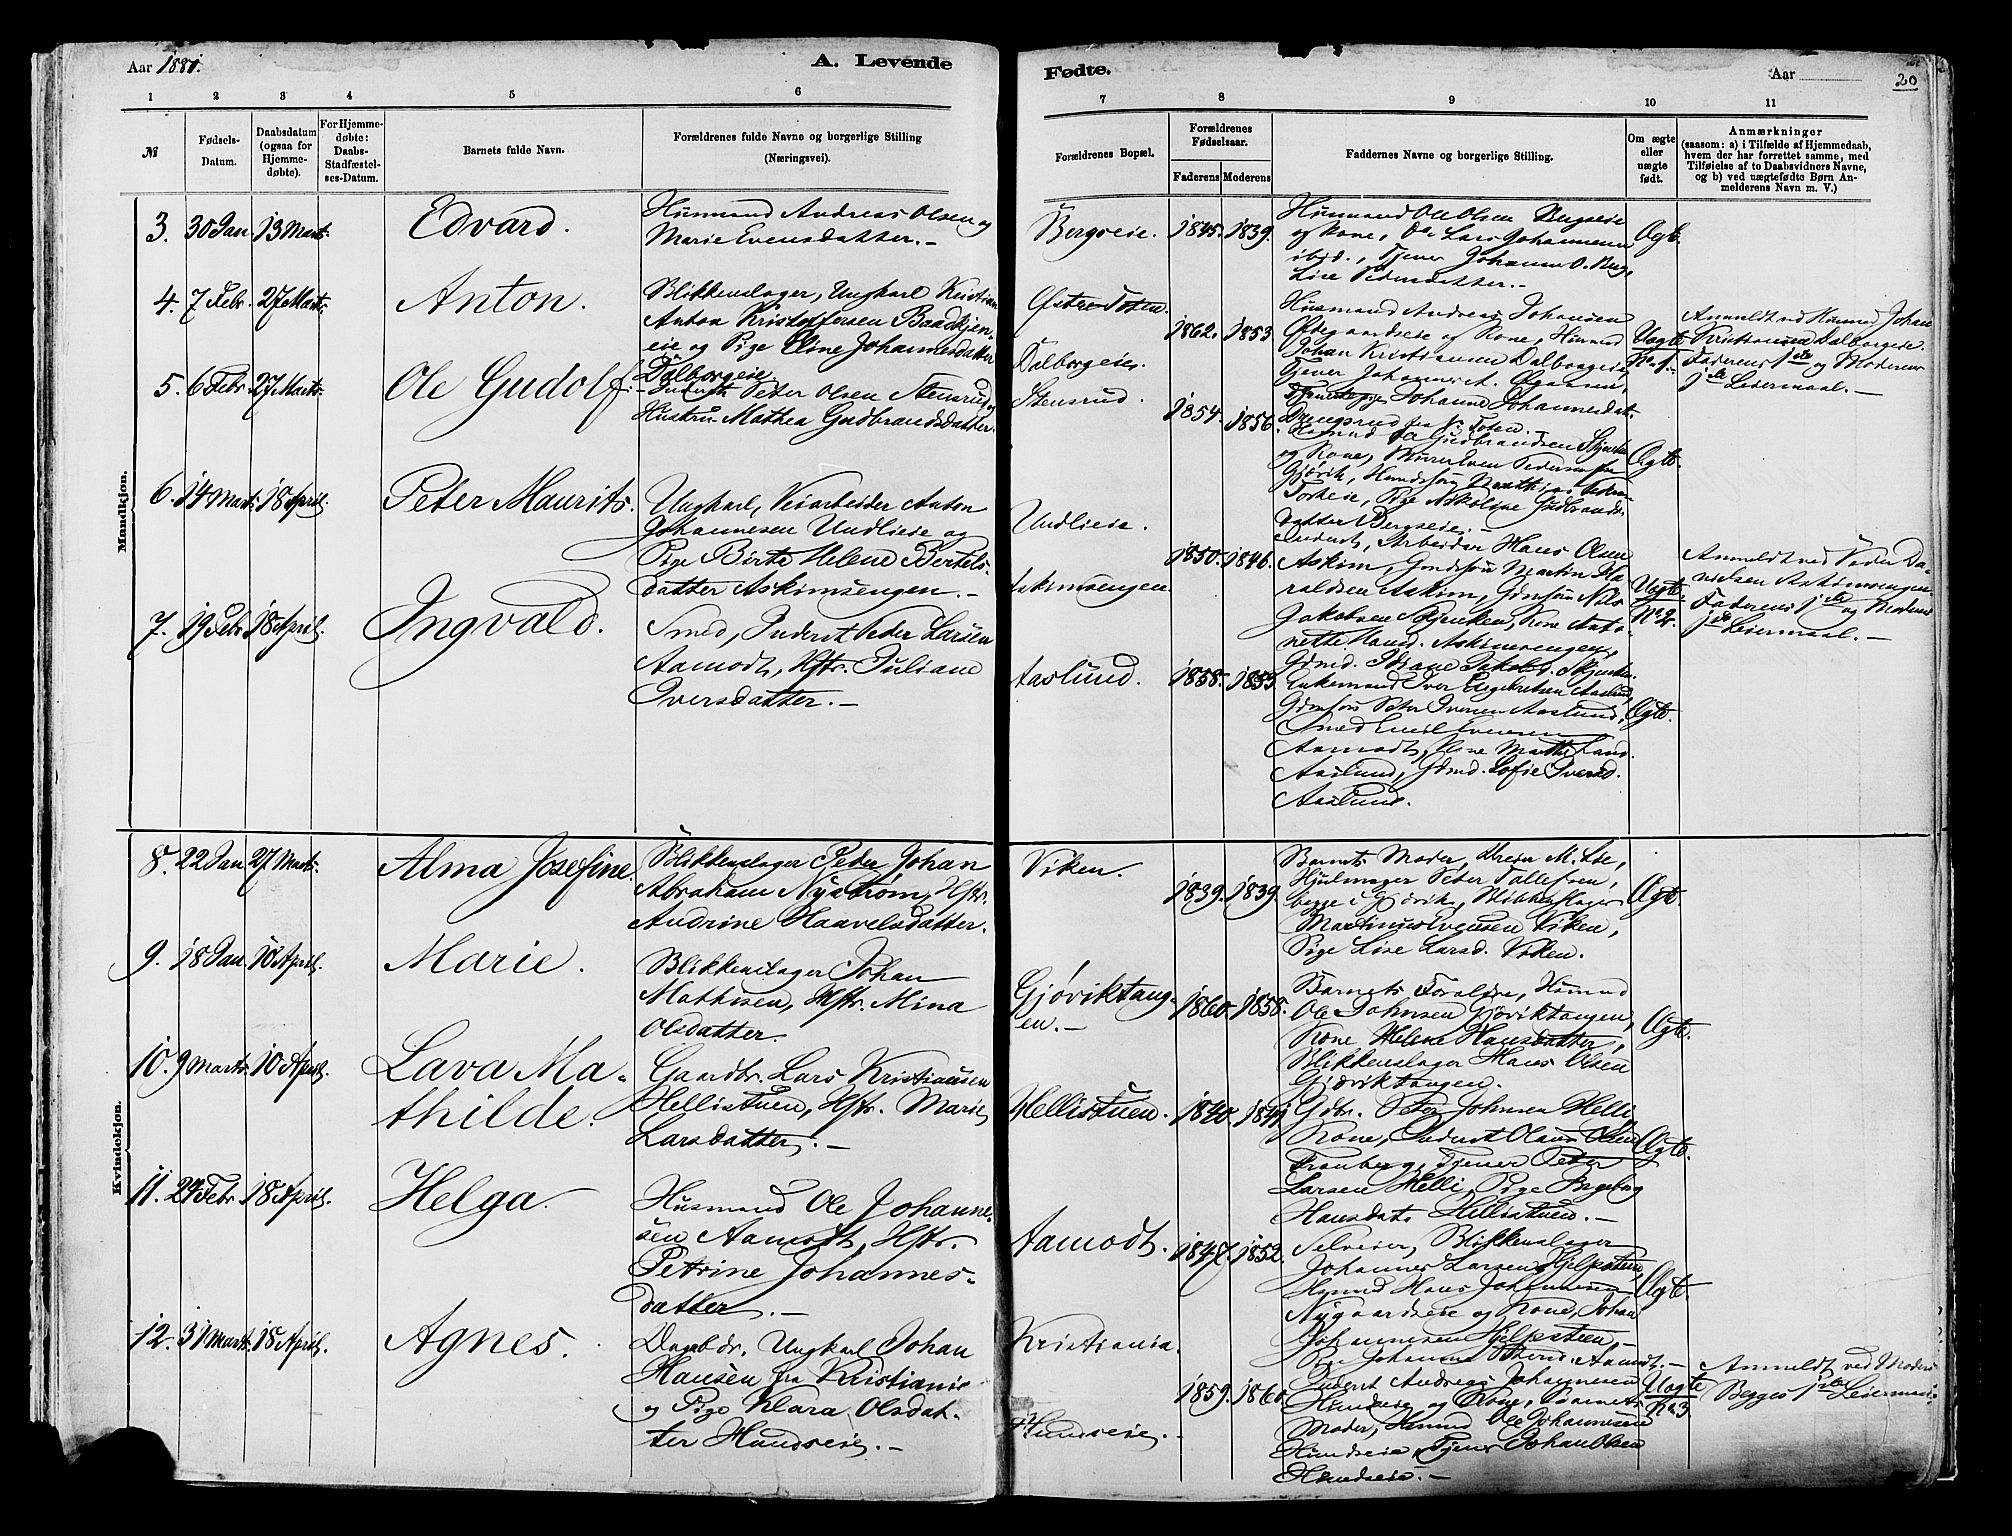 Aar 1881.
A. Levende
Fødte.
Aar
20
1 2 3 4 5 6
7 8 9 10 11
№
Fødsels-
Datum.
Daabsdatum
(ogsaa for
Hjemme-
døbte).
For Hjemme-
døbte:
Daabs-
Stadfæstel-
ses-Datum.
Barnets fulde Navn.
Forældrenes fulde Navne og borgerlige Stilling
(Næringsvei).
Forældrenes Bopæl.
Forældrenes
Fødselsaar.
Faderens Moderens
Faddernes Navne og borgerlige Stilling.
Om ægte
eller
uægte
født.
Anmærkninger
(saasom: a) i Tilfælde af Hjemmedaab,
hvem der har forrettet samme, med
Tilføielse af to Daabsvidners Navne,
og b) ved uægtefødte Børn An-
melderens Navn m. V.)
Mandkjøn.
3. 30 Jan 13 Marts
Edvard.
Husmand Andreas Olsen og
Marie Evensdatter.
Bergseie.
1845. 1839.
Husmand Ole Olsen Bergseie
og Kone, Do Lars Johannesen
ibid., Tjener Johannes O. Berg,
Lise Pedersdatter.
Ægte.
4. 7 Febr 27 Marts
Anton.
Blikkenslager, Ungkarl Kristian
Anton Kristoffersen Baadkjen
eie og Pige Oline Johannesdatter
Dalborgeie.
Østre Toten.
Dalborgeie.
1862. 1853
Husmand Andreas Johansen
Ødegaardseie og Kone, Husmd
Johan Kristiansen Dalborgeie
Tjener Johannes A.
Johanne Johannesdat-
fra V. Toten.
Uægte
No 1.
Anmeldt ved Husmd Johan
Kristiansen Dalborgeie.
Faderens 1ste og Moderens
1ste Leiermaal.
5. 6 Febr 27 Marts
Ole Gudolf.
Inderst Peter Olsen Stensrud og
Hustru Mathea Gudbrandsdatter.
Stensrud.
1854. 1856.
Gudbrandsen
og Kone, Even Pedersen fra
Gjøvik, Mathias Peder
Pige Nikoline Gudbrands-
datter Bergseie.
Ægte.
6. 14 Marts 18 April.
Peter Maurits.
Ungkarl, Veiarbeider Anton
Johannesen Undlieie og
Pige Birte Helene Bertels-
datter Askimsengen.
Undlieie.
Askimsengen.
1850. 1846.
Inderst, Arbeider Hans Olsen
Askim, Gmdsøn Martin Ha-
raldsen Askim, Gdmsøn Nils
Jakobsen Skjenken, Kone Anto-
nette Askimsengen,
Gdmd. Jakobsd. Skjenken.
Uægte
No 2.
Anmeldt ved Fader Da-
nielsen Askimsengen
Faderens 1ste og Moderens
1ste Leiermaal.
7. 19 Febr 18 April.
Ingvald.
Smed, Inderst Peder Larsen
Aamodt, Hstr. Juliane
Iversdatter.
Aaslund.
1858. 1853.
Enkemand Iver Engebretsen Aaslund,
Peter Iversen Aaslund,
Smed Emil Iversen
Aamodt, Marthe Lars
Aaslund, Gdmd. Sofie Iversd.
Aaslund.
Ægte.
Kvindekjøn.
8. 22 Jan 27 Marts
Alma Josefine.
Blikkenslager Peder Johan
Abraham Nystrøm, Hstr.
Andrine Haavelsdatter.
Viken.
1839. 1839.
Barnets Moder,
Hjulmager Peter Tollefsen,
begge i Gjøvik, Blikkenslager
Martinus Evensen Viken,
Pige Lise Larsd. Viken.
Ægte
9. 18 Jan 10 April.
Marie.
Blikkenslager Johan
Mathisen, Hstr. Mina
Olsdatter.
Gjøviktang-
en.
1860. 1858.
Barnets Forældre, Husmd
Ole Johnsen Gjøviktangen,
Kone Helene Hansdatter,
Blikkenslager Hans Olsen
Gjøviktangen.
Ægte.
10. 9 Marts 10 April.
Lava Ma-
thilde.
Gaardbr. Lars Kristiansen
Hellistuen, Hstr. Marie
Larsdatter.
Hellistuen.
1840. 1841
Gdbr. Peter Johnsen Helli,
Kone, Inderst Olaus Olsen
Tranberg, Tjener Peter
Larsen Helli, Pige Ingeborg
Hansdatr Hellistuen.
Ægte.
11. 24 Febr 18 April.
Helga.
Husmand Ole Johanne-
sen Aamodt, Hstr.
Petrine Johannes-
datter.
Aamodt.
1847. 1852.
Selveier, Blikkenslager
Johannes Larsen Hjelpsteen,
Husmd Hans Johannesen
Nygaardseie og Kone, Johan
Johannesen Hjelpsteen,
Pige Johanne Aamodt.
Ægte.
12. 31 Marts 18 April.
Agnes.
Dagbdr. Ungkarl Johan
Hansen fra Kristiania
og Pige Klara Olsdat-
ter Hundseie.
Kristiania.
Hundseie.
1859. 1860.
Inderst Andreas Johannesen
Hundseie og Kone, Barnets
Moder, Husmd Ole Johannesen
Hundseie, Tjener Johan Olsen
Hundseie.
Uægte
No 3.
Anmeldt ved Moder
Begges 1ste Leiermaal.